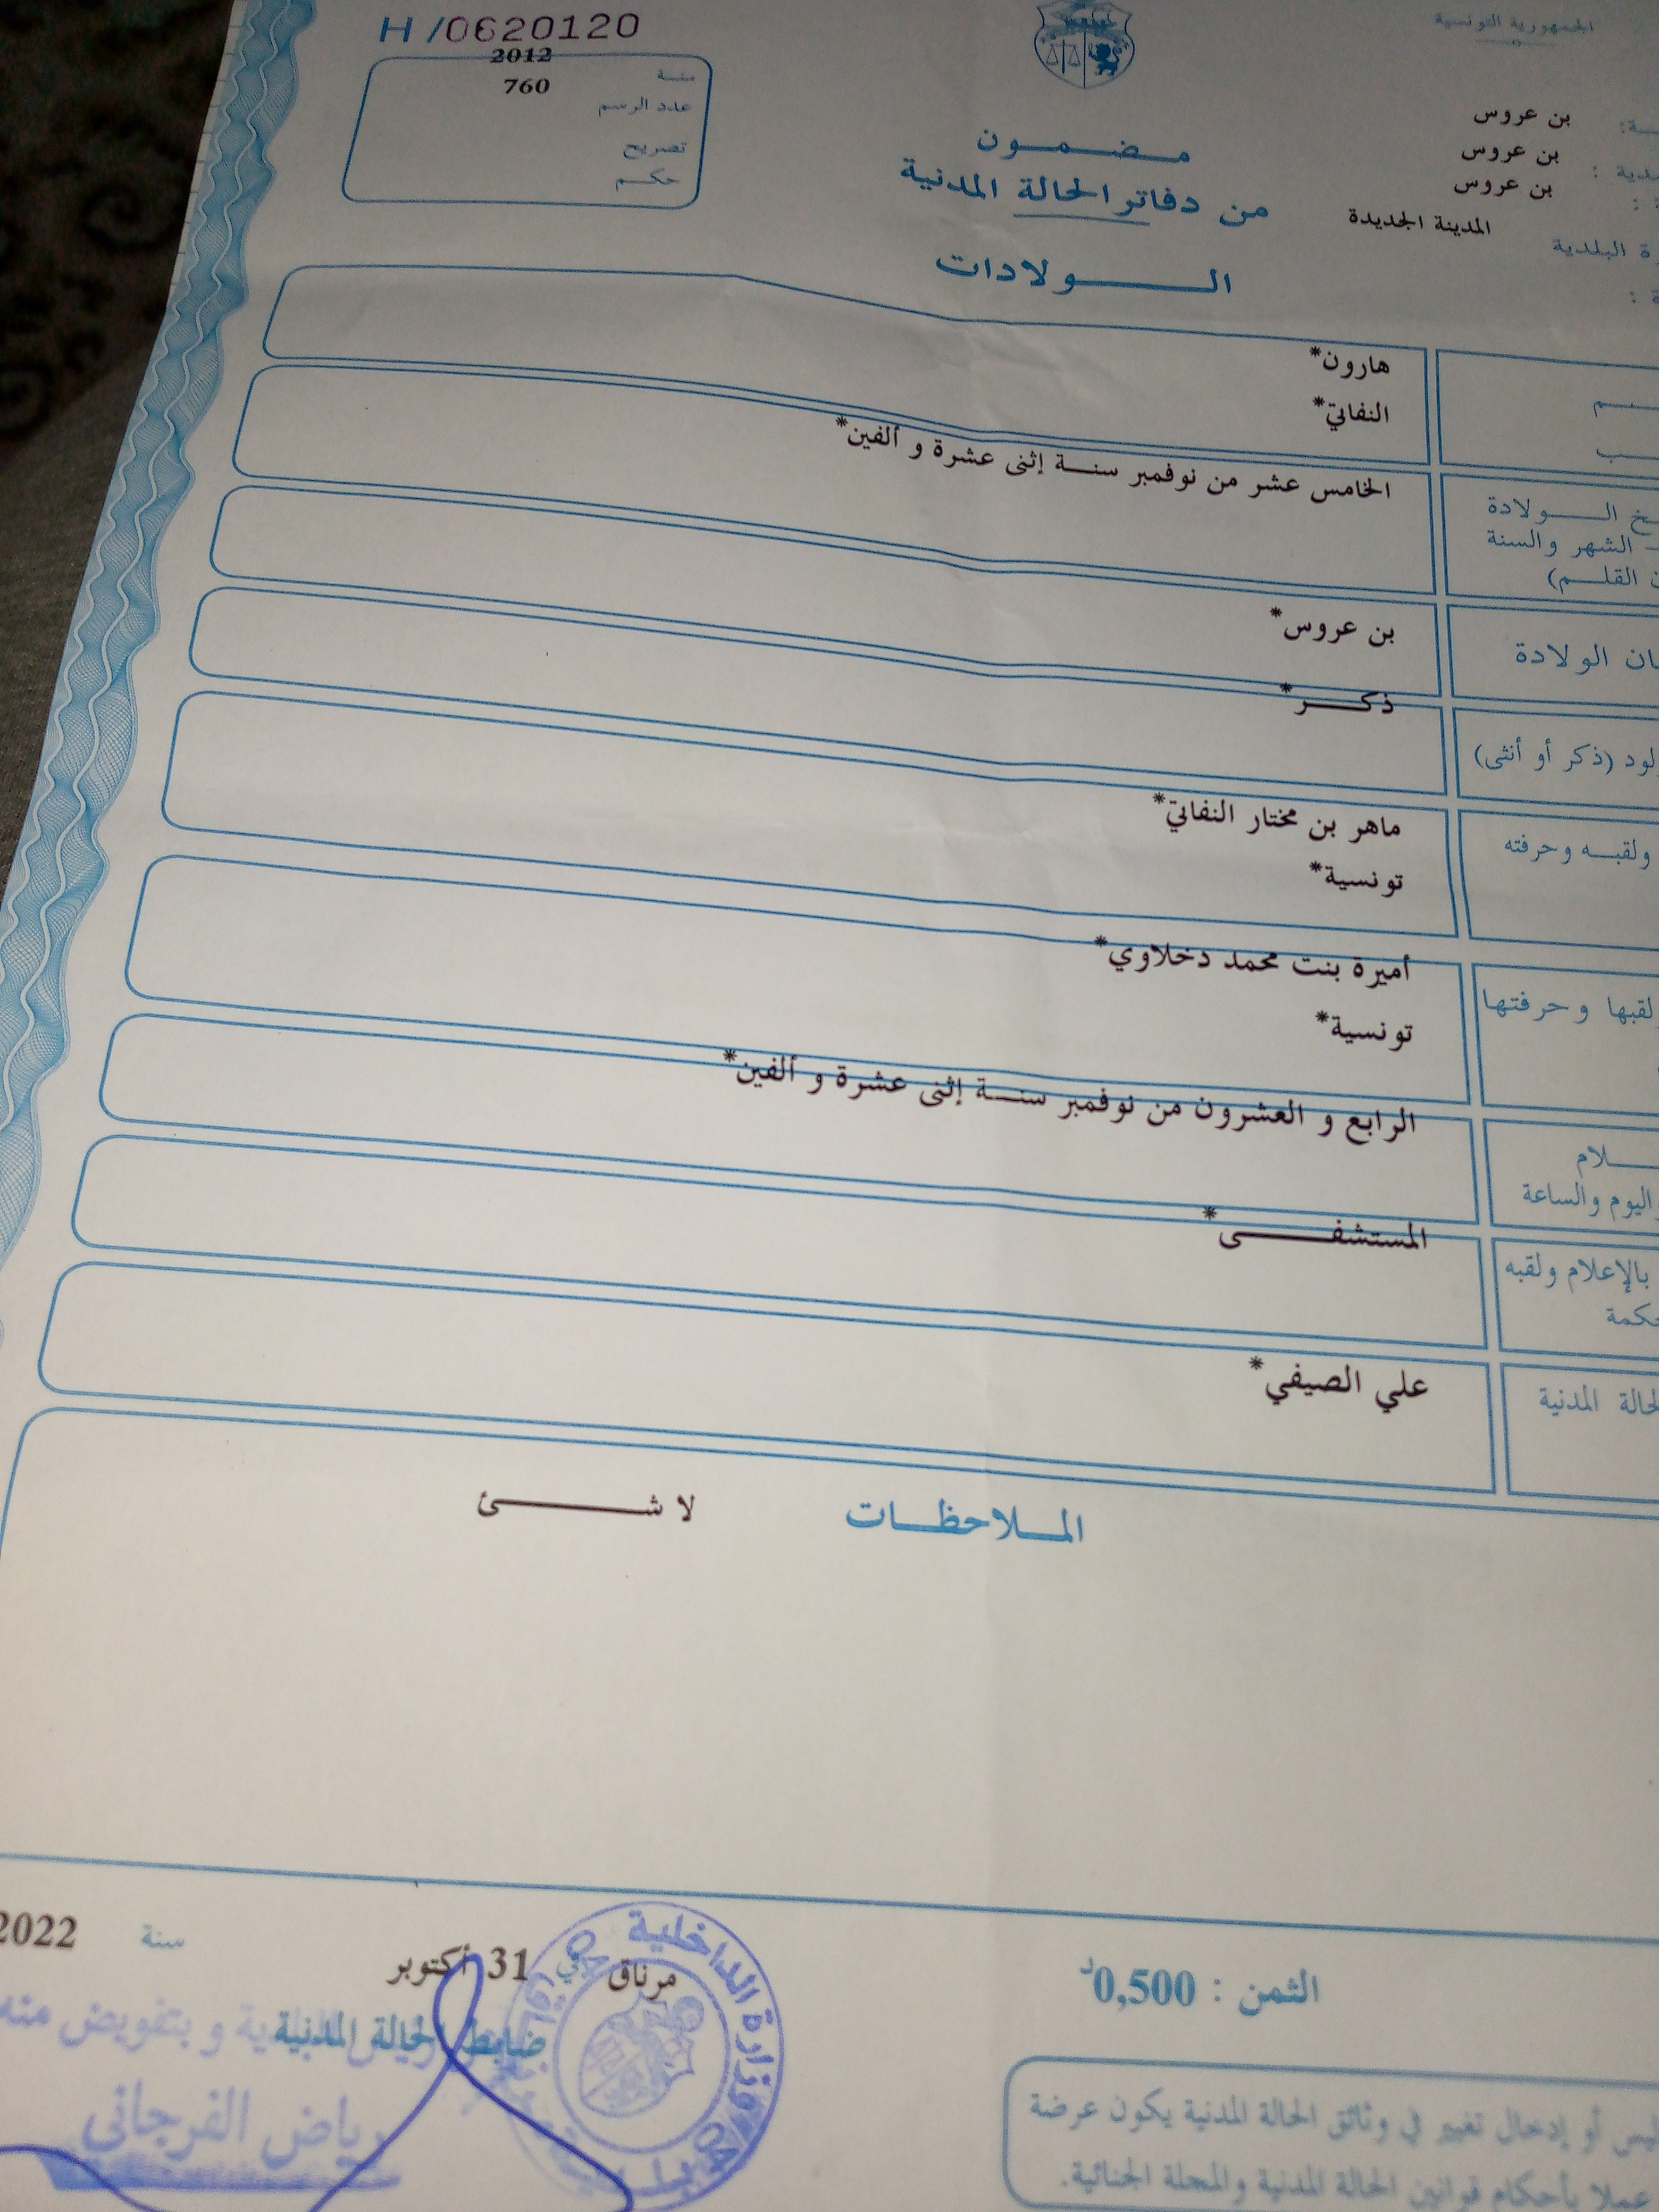 الجمهورية التونسية
H /0620120
سنة 2012
عدد الرسم 760
تصريح
حكم
بن عروس
بن عروس
بن عروس
المدينة الجديدة
البلدية
مضمون
من دفاتر الحالة المدنية
الولادات
هارون*
النفاتي*
الولادة
الشهر والسنة
القلم)
الخامس عشر من نوفمبر سنة إثنى عشرة و ألفين*
الولادة
بن عروس*
(ذكر أو أنثى)
ذكر*
ولقبه وحرفته
ماهر بن مختار النفاتي*
تونسية*
لقبها وحرفتها
أميرة بنت محمد دخلاوي*
تونسية*
واليوم والساعة
الرابع و العشرون من نوفمبر سنة إثنى عشرة و ألفين*
بالإعلام ولقبه
المستشفى*
الحالة المدنية
علي الصيفي*
الملاحظات لا شئ
الثمن : 0,500د
مرناق في 31 أكتوبر سنة 2022
ضابط الحالة المدنية
و بتفويض منه
رياض الفرجاني
وزارة الداخلية
أو إدخال تغيير في وثائق الحالة المدنية يكون عرضة
عملا بأحكام قوانين الحالة المدنية والمجلة الجنائية.